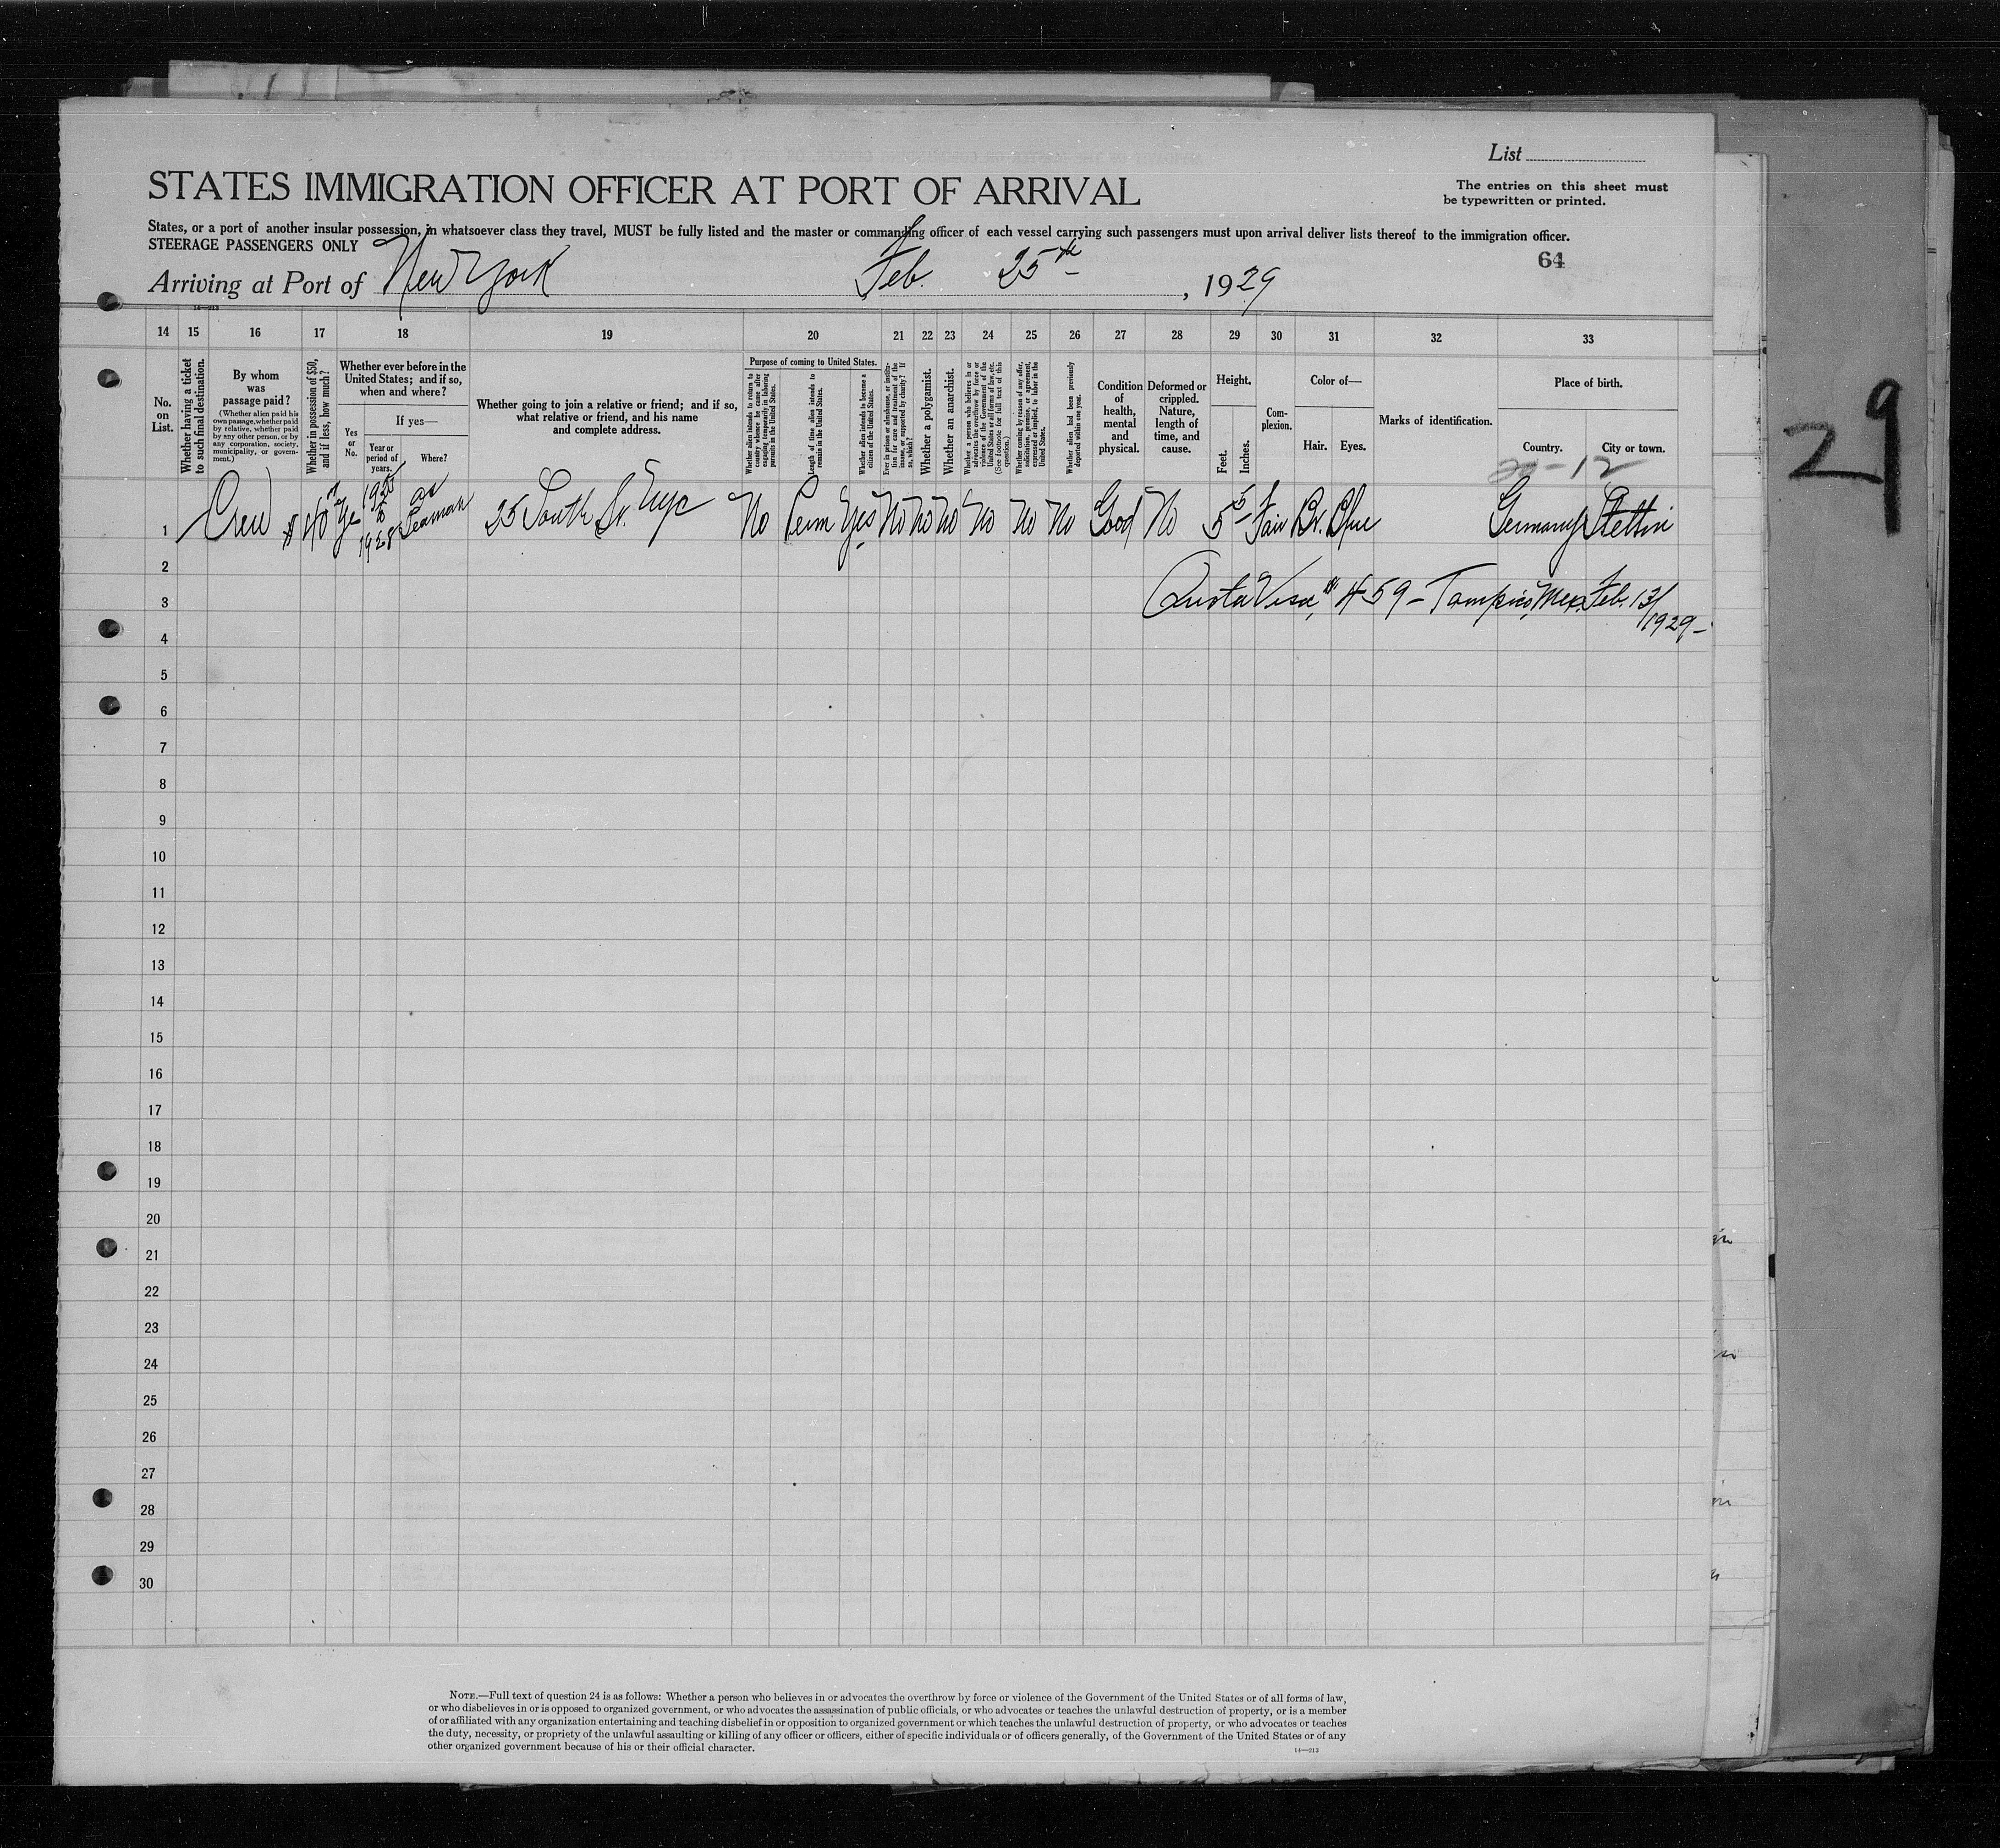 List
STATES IMMIGRATION OFFICER AT PORT OF ARRIVAL
The entries on this sheet must
be typewritten or printed.
States, or a port of another insular possession, in whatsoever class they travel, MUST be fully listed and the master or commanding officer of each vessel carrying such passengers must upon arrival deliver lists thereof to the immigration officer.
STEERAGE PASSENGERS ONLY
64
Arriving at Port of New York Feb. 25th, 1929
14—213
14 15 16 17 18 19 20 21 22 23 24 25 26 27 28 29 30 31 32 33
No. on List.
Whether having a ticket to such final destination.
By whom was passage paid?
(Whether alien paid his own passage, whether paid by relative, whether paid by any other person, or by any corporation, society, municipality, or government.)
Whether in possession of $50, and if less, how much?
Whether ever before in the United States; and if so, when and where?
Yes or No.
If yes—
Year or period of years.
Where?
Whether going to join a relative or friend; and if so, what relative or friend, and his name and complete address.
Purpose of coming to United States.
Whether alien intends to return to country whence he came after engaging temporarily in laboring pursuits in the United States.
Length of time alien intends to remain in the United States.
Whether alien intends to become a citizen of the United States.
Ever in prison or almshouse, or institution for care and treatment of the insane, or supported by charity? If so, which?
Whether a polygamist.
Whether an anarchist.
Whether a person who believes in or advocates the overthrow by force or violence of the Government of the United States or all forms of law, etc. (See footnote for full text of this question.)
Whether coming by reason of any offer, solicitation, promise, or agreement, expressed or implied, to labor in the United States.
Whether alien had been previously deported within one year.
Condition of health, mental and physical.
Deformed or crippled. Nature, length of time, and cause.
Height.
Feet. Inches.
Complexion.
Color of—
Hair. Eyes.
Marks of identification.
Place of birth.
Country. City or town.
29
1 Crew $40 Yes to 1928 as Seaman 25 South St. NYC No Perm Yes No No No No No No Good No 5 5 Fair Br. Blue Germany Stettin
2
3 Quota Visa, # 59 - Tampico, Mex. Feb. 13/
1929-
4
5
6
7
8
9
10
11
12
13
14
15
16
17
18
19
20
21
22
23
24
25
26
27
28
29
30
NOTE.—Full text of question 24 is as follows: Whether a person who believes in or advocates the overthrow by force or violence of the Government of the United States or of all forms of law,
or who disbelieves in or is opposed to organized government, or who advocates the assassination of public officials, or who advocates or teaches the unlawful destruction of property, or is a member
of or affiliated with any organization entertaining and teaching disbelief in or opposition to organized government or which teaches the unlawful destruction of property, or who advocates or teaches
the duty, necessity, or propriety of the unlawful assaulting or killing of any officer or officers, either of specific individuals or of officers generally, of the Government of the United States or of any
other organized government because of his or their official character.
14—213